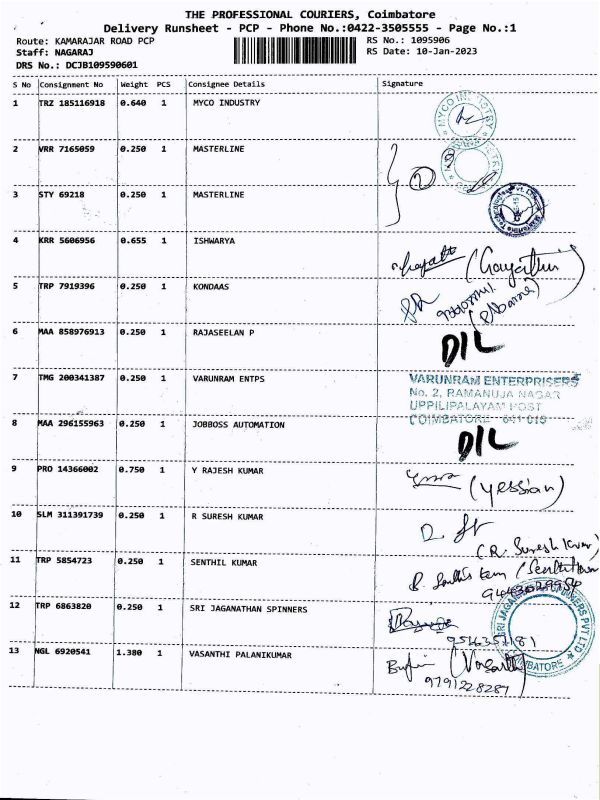 THE PROFESSIONAL COURIERS, Coimbatore
Delivery Runsheet - PCP - Phone No.:0422-3505555 - Page No.:1
Route: KAMARAJAR ROAD PCP RS No.: 1095906
Staff: NAGARAJ RS Date: 10-Jan-2023
DRS No.: DCJB109590601
S No Consignment No Weight PCS Consignee Details Signature
1 TRZ 185116918 0.640 1 MYCO INDUSTRY
2 VRR 7165059 0.250 1 MASTERLINE
3 STY 69218 0.250 1 MASTERLINE
4 KRR 5606956 0.655 1 ISHWARYA
(Gayathri)
5 TRP 7919396 0.250 1 KONDAAS
6 MAA 858976913 0.250 1 RAJASEELAN P D/L
7 TMG 200341387 0.250 1 VARUNRAM ENTPS VARUNRAM ENTERPRISERS
No. 2, RAMANUJA NAGAR
UPPILIPALAYAM POST
COIMBATORE - 641 015
8 MAA 296155963 0.250 1 JOBBOSS AUTOMATION D/L
9 PRO 14366002 0.750 1 Y RAJESH KUMAR (yessian)
10 SLM 311391739 0.250 1 R SURESH KUMAR
(R. Suresh Kumar)
11 TRP 5854723 0.250 1 SENTHIL KUMAR
12 TRP 6863820 0.250 1 SRI JAGANATHAN SPINNERS
13 NGL 6920541 1.380 1 VASANTHI PALANIKUMAR (Vasanthi)
9791228287